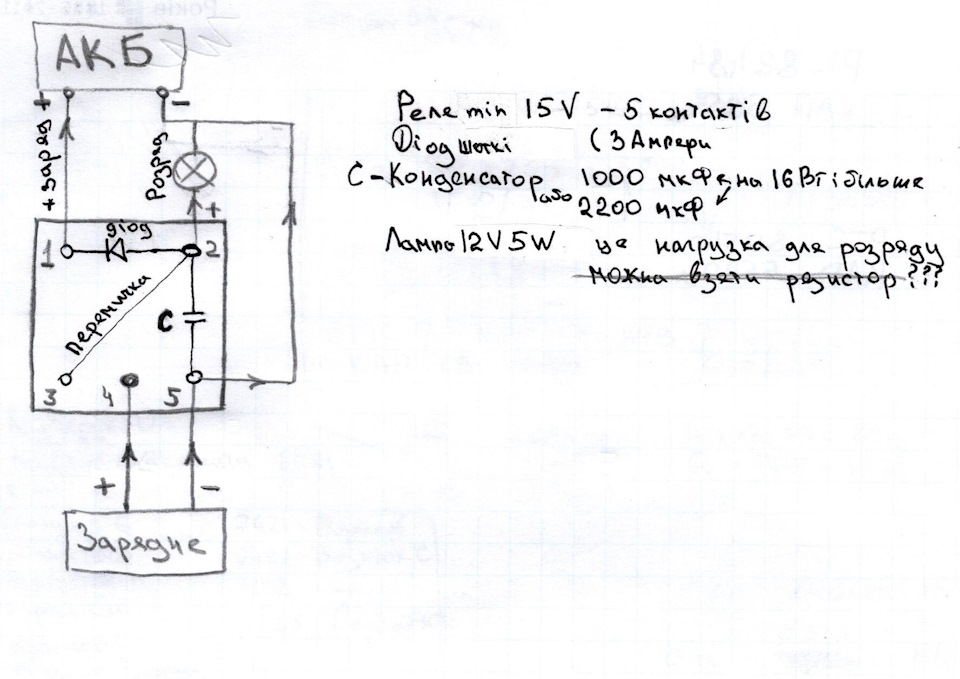 АКБ
+ -
+ заряд
Розряд
+
діод
1 2
Перемичка
С
3 4 5
+ -
Зарядне
Реле min 15V - 5 контактів
Діод Шоткі (3 Ампери
С - Конденсатор 1000 мкФ на 16 Вт і більше
або 2200 мкФ
Лампа 12V 5W це нагрузка для розряду
можна взяти резистор???